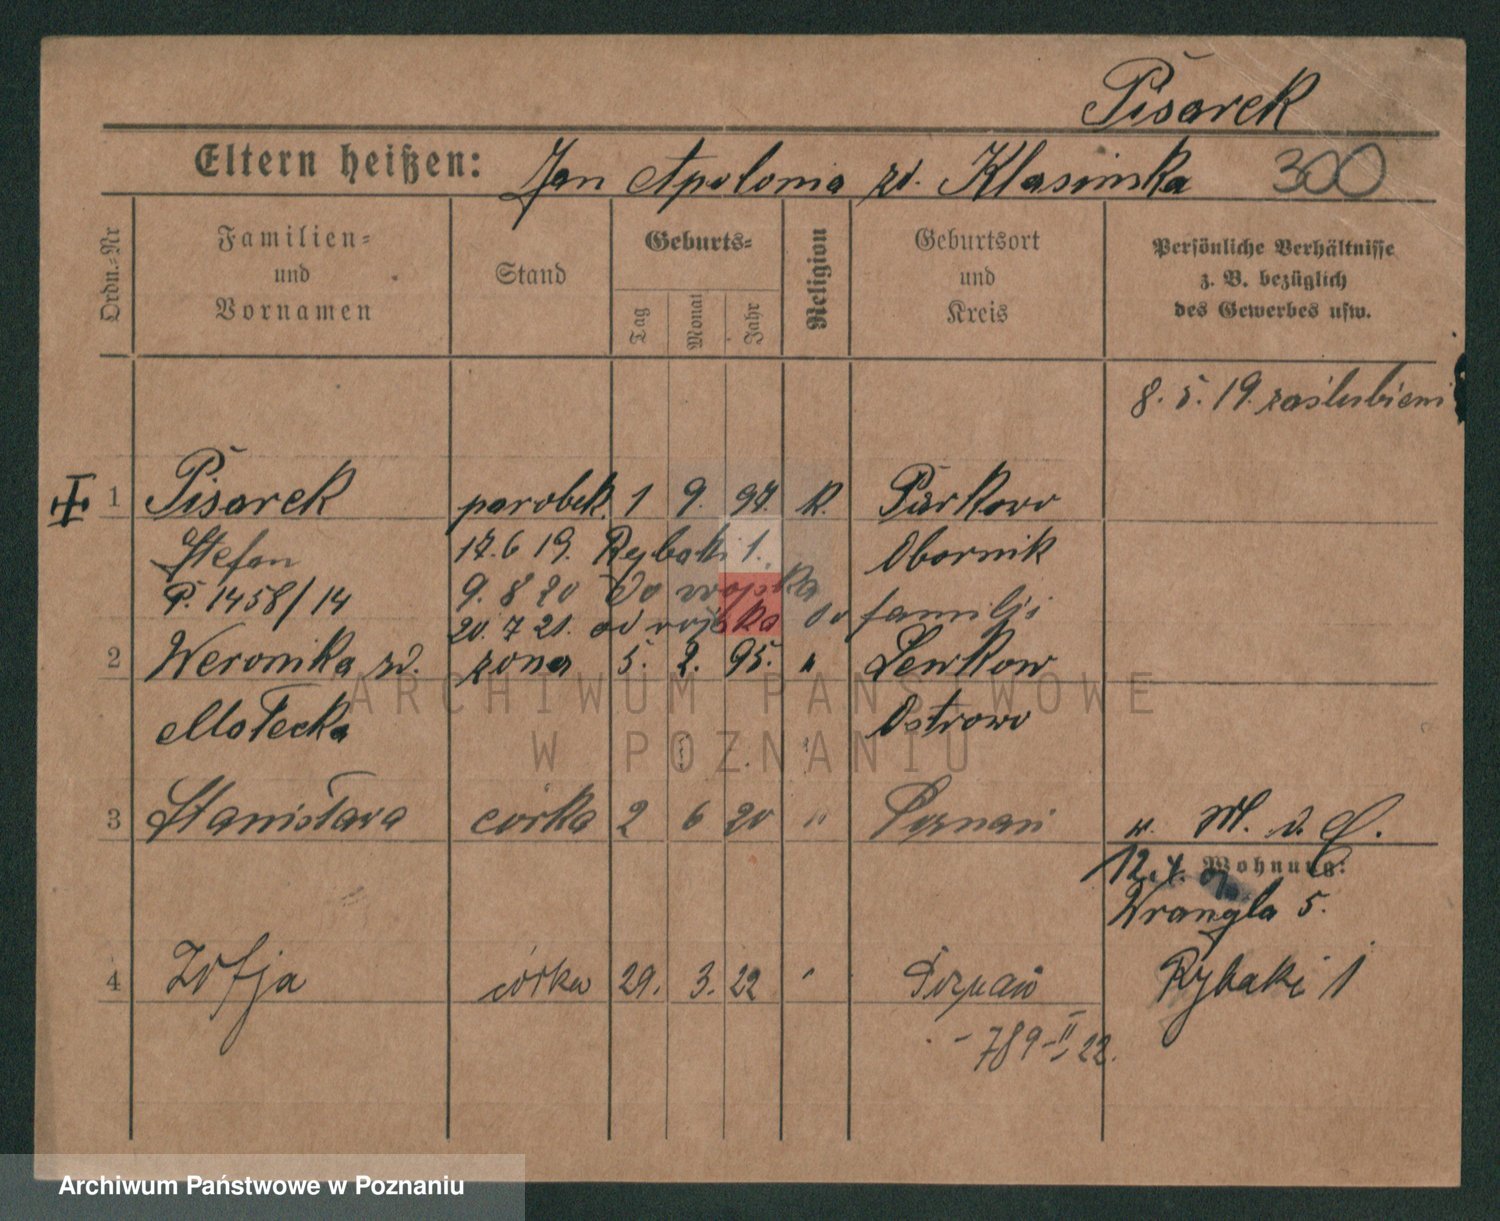 Pisarek
Eltern heißen: Jan Apolonia zd. Klasinska 300
Ordn.-Nr
Familien- und Vornamen
Stand
Geburts-
Tag Monat Jahr
Religion
Geburtsort und Kreis
Persönliche Verhältnisse
z. B. bezüglich
des Gewerbes usw.
8. 5. 19. zaślubieni
1 Pisarek parobek. 1 9. 97. k. Parkowo
Stefan 17.6 19. Rybaki 1. Obornik
P. 1458/14 9. 8 20 do wojska
20. 7 21. od wojska do familii
2 Weronika zd. żona 5. 2. 95. " Lewkow
Małecka Ostrowo
3 Stanisława córka 2 6 20 " Poznań w. M. d. O.
Wohnung:
12.4.
Wrangla 5.
4 Zofja córka 29. 3. 22 " Poznań Rybaki 1
- 789-II-22.
ARCHIWUM PAŃSTWOWE
W POZNANIU
Archiwum Państwowe w Poznaniu